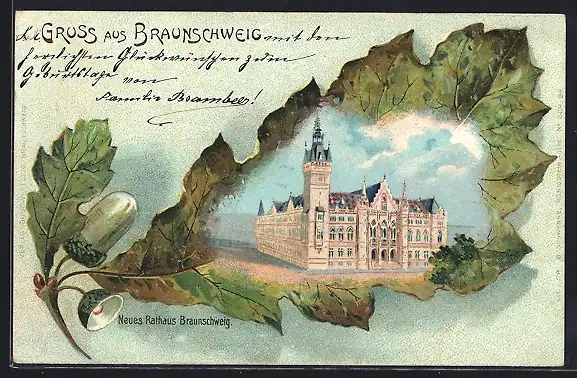 GRUSS AUS BRAUNSCHWEIG mit den
herzlichsten Glückwünschen zum
Geburtstage von
Familie Brambeer!
Neues Rathaus Braunschweig.